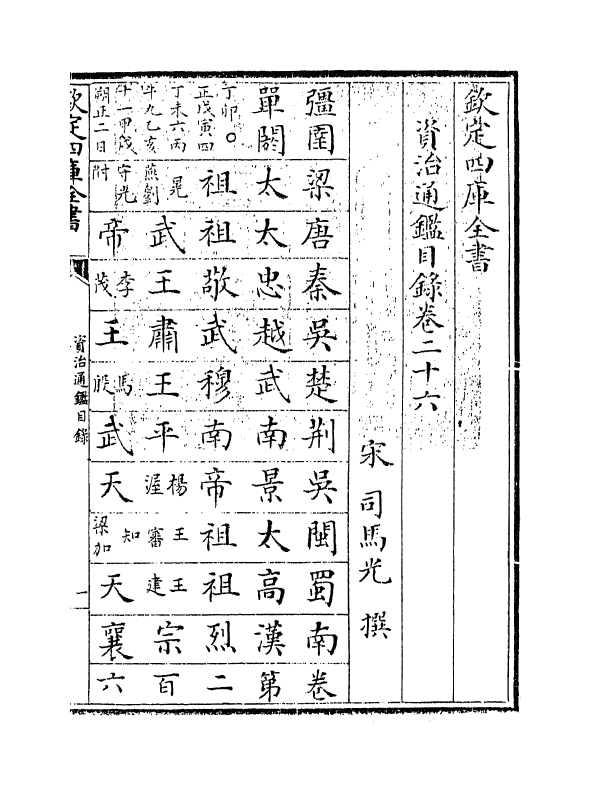 欽定四庫全書
資治通鑑目錄卷二十六
宋 司馬光 撰
彊圉 梁 唐 秦 吳 楚 荆 吳 閩 蜀 南 卷
單閼 太 太 忠 越 武 南 景 太 高 漢 第
丁卯○ 正戊寅四 祖 祖 敬 武 穆 南 帝 祖 祖 烈 二
丁未六丙 午九乙亥 晃 燕劉 武 王 肅 王 平 楊渥 王審知 王建 宗 百
十一甲戌 朔正二日 守光 附 帝 李茂 王 馬殷 武 天 梁加 天 襄 六
欽定四庫全書 資治通鑑目錄 一